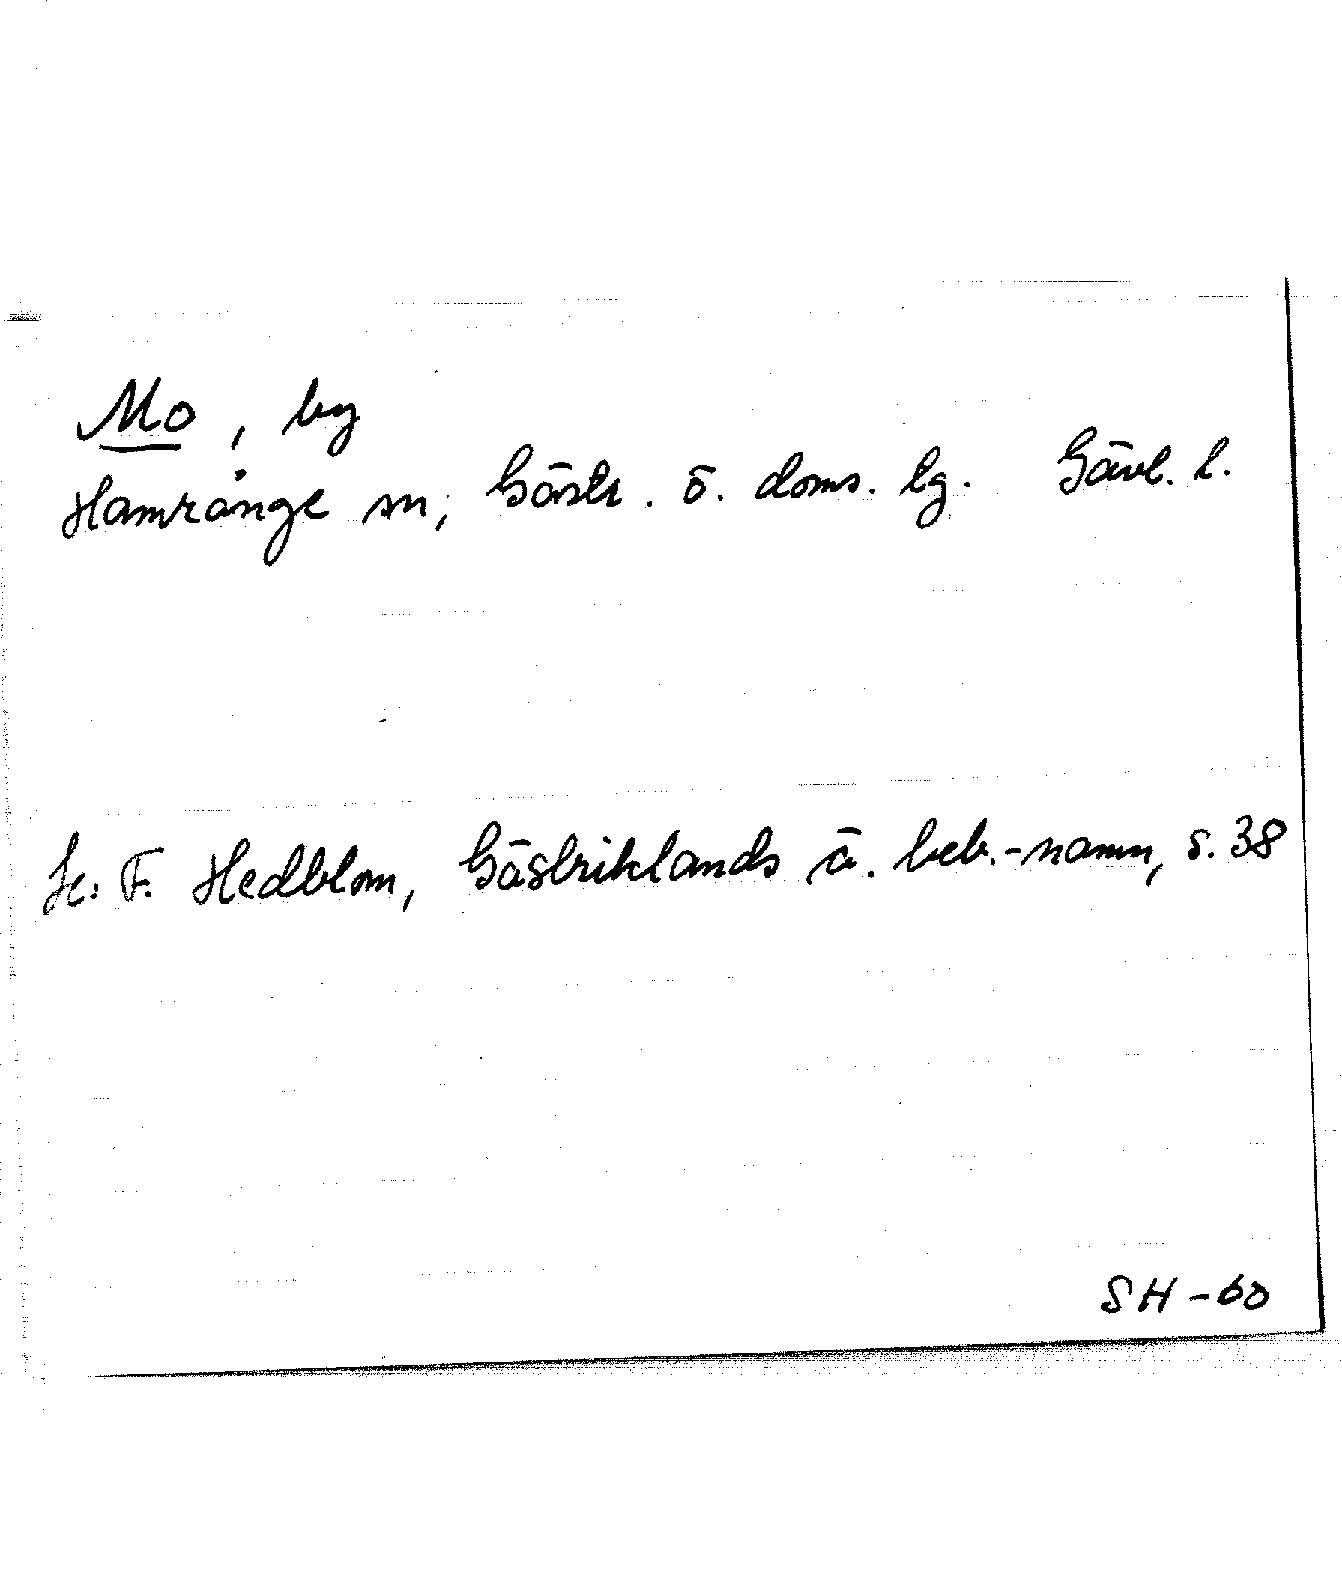 Mo, by
Hamrånge sn, Gästr. ö. doms. lg. Gävl. l.
Se: F. Hedblom, Gästriklands ä. beb.-namn, s. 38
SH-60